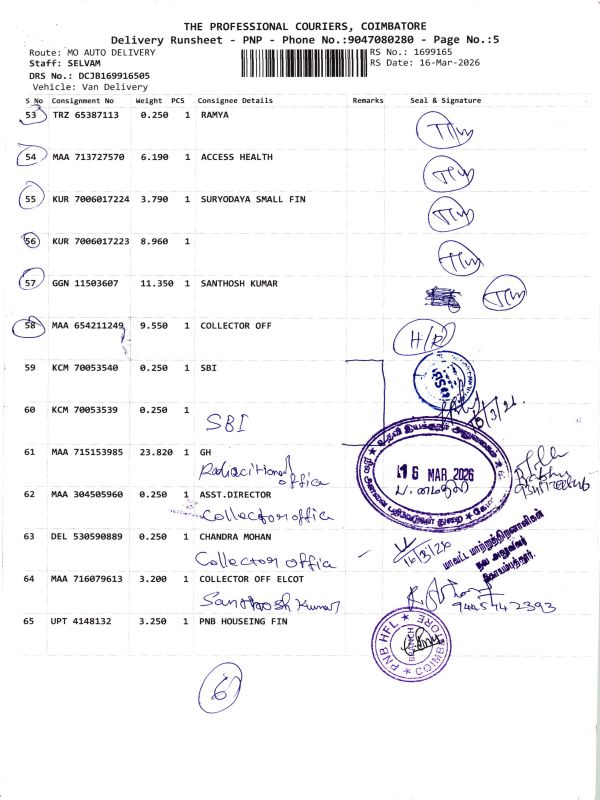 THE PROFESSIONAL COURIERS, COIMBATORE
Delivery Runsheet - PNP - Phone No.:9047080280 - Page No.:5
Route: MO AUTO DELIVERY
RS No.: 1699165
Staff: SELVAM
RS Date: 16-Mar-2026
DRS No.: DCJB169916505
Vehicle: Van Delivery
S No Consignment No Weight PCS Consignee Details Remarks Seal & Signature
53 TRZ 65387113 0.250 1 RAMYA
54 MAA 713727570 6.190 1 ACCESS HEALTH
55 KUR 7006017224 3.790 1 SURYODAYA SMALL FIN
56 KUR 7006017223 8.960 1
57 GGN 11503607 11.350 1 SANTHOSH KUMAR
58 MAA 654211249 9.550 1 COLLECTOR OFF H/R
59 KCM 70053540 0.250 1 SBI
60 KCM 70053539 0.250 1
SBI
61 MAA 715153985 23.820 1 GH
office
16 MAR 2026
62 MAA 304505960 0.250 1 ASST.DIRECTOR
Collector office
63 DEL 530590889 0.250 1 CHANDRA MOHAN
Collector office
16/3/26
மாவட்ட மாற்றுத்திறனாளிகள்
நல அலுவலர்
கோயம்புத்தூர்.
64 MAA 716079613 3.200 1 COLLECTOR OFF ELCOT
Santhosh Kumar
9445742393
65 UPT 4148132 3.250 1 PNB HOUSEING FIN
PNB HFL
BRANCH
COIMBATORE
6